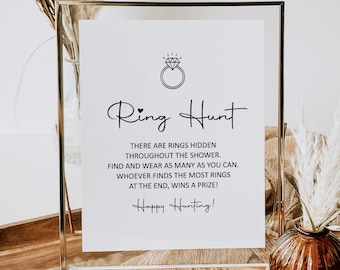 Ring Hunt
THERE ARE RINGS HIDDEN
THROUGHOUT THE SHOWER.
FIND AND WEAR AS MANY AS YOU CAN.
WHOEVER FINDS THE MOST RINGS
AT THE END, WINS A PRIZE!
Happy Hunting!